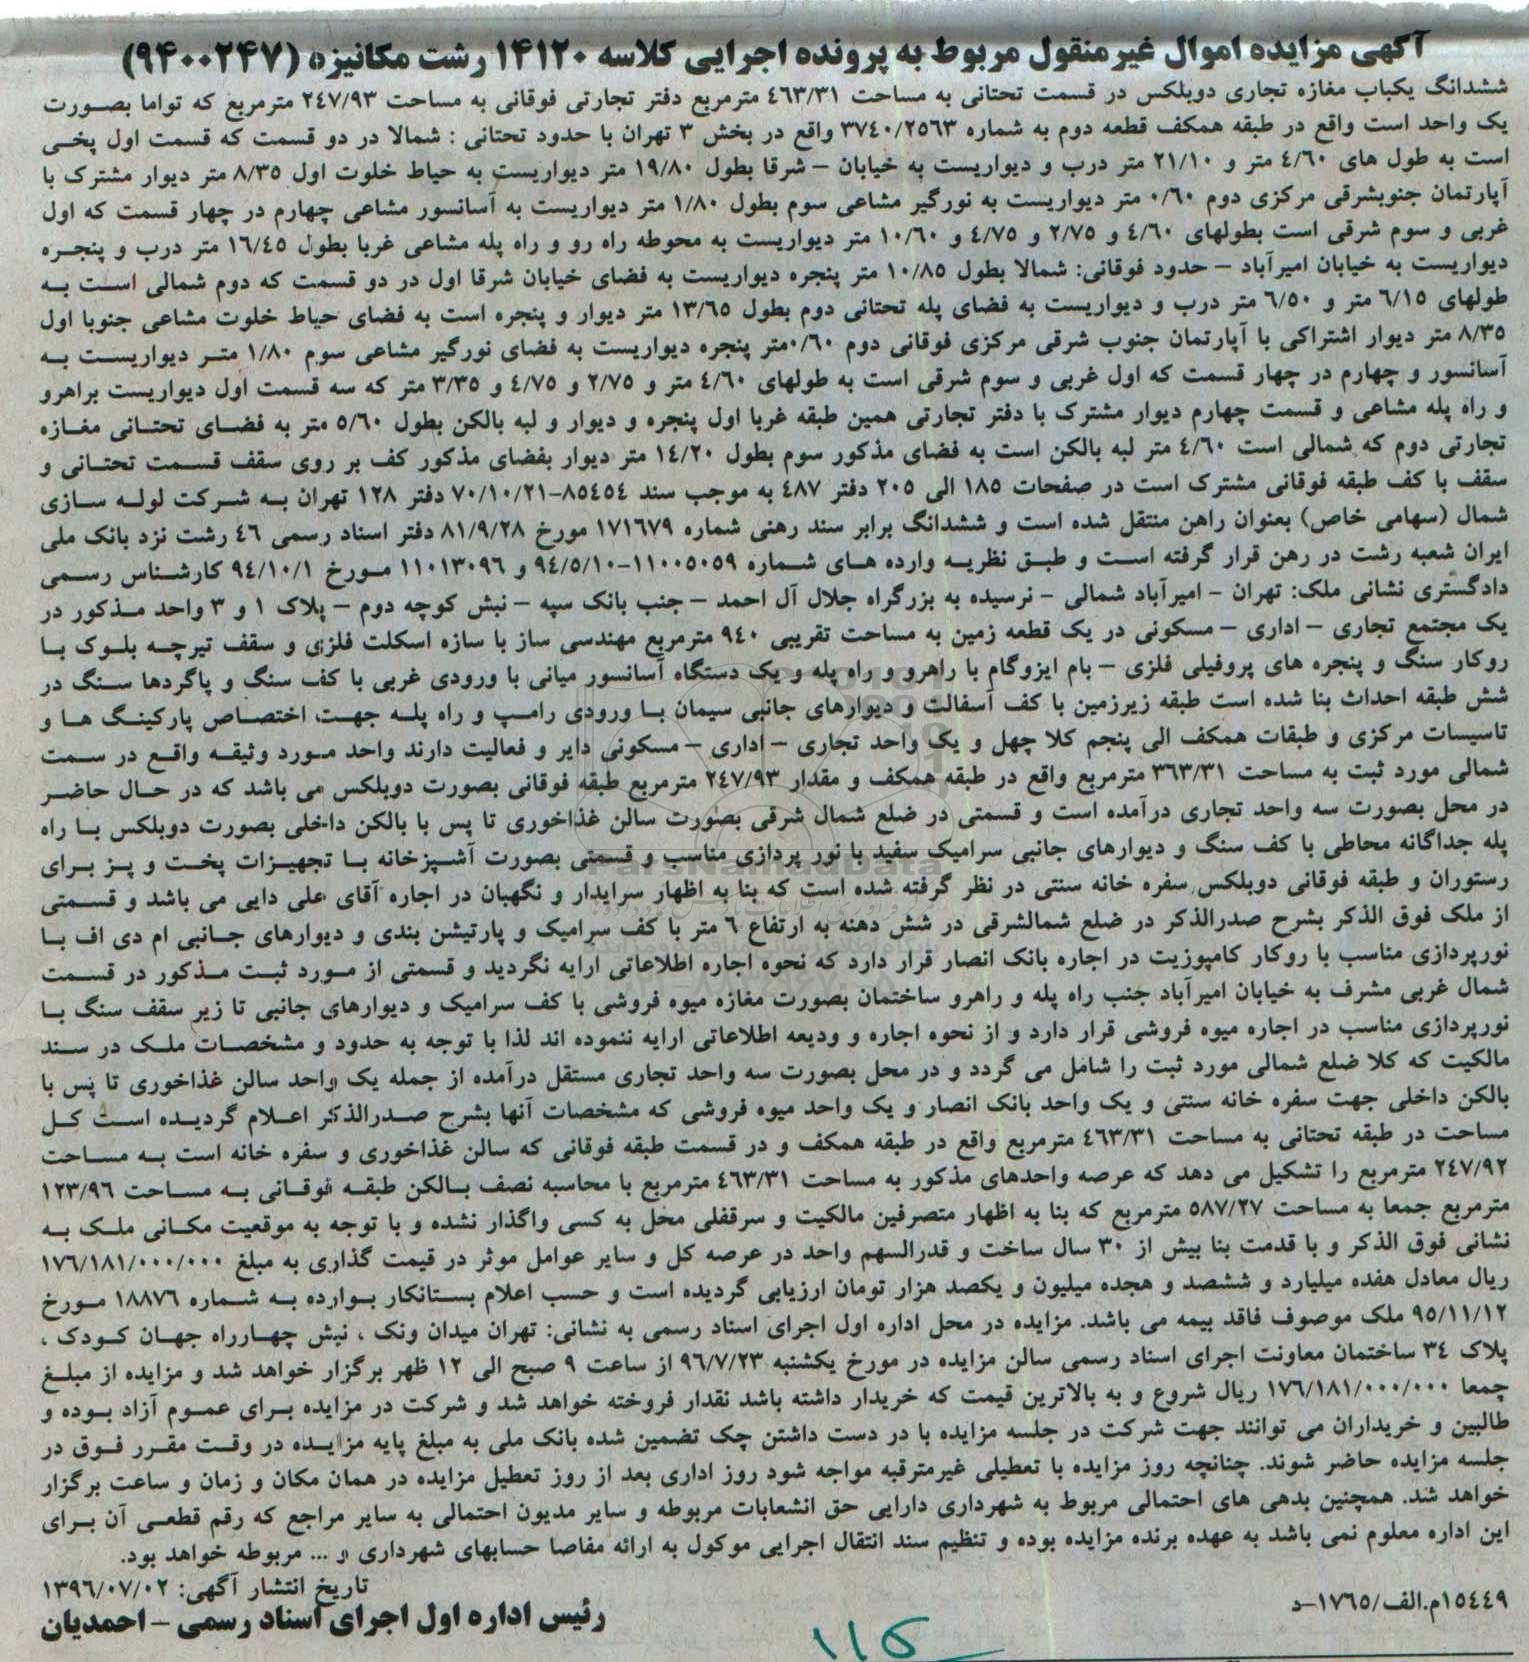 آگهی مزایده اموال غیرمنقول مربوط به پرونده اجرایی کلاسه ۱۴۱۲۰ رشت مکانیزه (۹۴۰۰۲۴۷)
ششدانگ یکباب مغازه تجاری دوبلکس در قسمت تحتانی به مساحت ٤٦٣/٣١ مترمربع دفتر تجارتی فوقانی به مساحت ۲٤۷/۹۳ مترمربع که تواما بصورت
یک واحد است واقع در طبقه همکف قطعه دوم به شماره ۳۷٤۰/۲۵٦۳ واقع در بخش ۳ تهران با حدود تحتانی : شمالا در دو قسمت که قسمت اول پخی
است به طول های ٤/٦۰ متر و ۲۱/۱۰ متر درب و دیواریست به خیابان – شرقا بطول ۱۹/۸۰ متر دیواریست به حیاط خلوت اول ۸/۳۵ متر دیوار مشترک با
آپارتمان جنوبشرقی مرکزی دوم ۰/٦۰ متر دیواریست به نورگیر مشاعی سوم بطول ۱/۸۰ متر دیواریست به آسانسور مشاعی چهارم در چهار قسمت که اول
غربی و سوم شرقی است بطولهای ٤/٦۰ و ۲/۷۵ و ٤/۷۵ و ۱۰/٦۰ متر دیواریست به محوطه راه رو و راه پله مشاعی غربا بطول ۱٦/٤۵ متر درب و پنجره
دیواریست به خیابان امیرآباد – حدود فوقانی: شمالا بطول ۱۰/۸۵ متر پنجره دیواریست به فضای خیابان شرقا اول در دو قسمت که دوم شمالی است به
طولهای ٦/۱۵ متر و ٦/۵۰ متر درب و دیواریست به فضای پله تحتانی دوم بطول ۱۳/٦۵ متر دیوار و پنجره است به فضای حیاط خلوت مشاعی جنوبا اول
۸/۳۵ متر دیوار اشتراکی با آپارتمان جنوب شرقی مرکزی فوقانی دوم ۰/٦۰متر پنجره دیواریست به فضای نورگیر مشاعی سوم ۱/۸۰ متر دیواریست به
آسانسور و چهارم در چهار قسمت که اول غربی و سوم شرقی است به طولهای ٤/٦۰ متر و ۲/۷۵ و ٤/۷۵ و ۳/۳۵ متر که سه قسمت اول دیواریست براهرو
و راه پله مشاعی و قسمت چهارم دیوار مشترک با دفتر تجارتی همین طبقه غربا اول پنجره و دیوار و لبه بالکن بطول ۵/٦۰ متر به فضای تحتانی مغازه
تجارتی دوم که شمالی است ٤/٦۰ متر لبه بالکن است به فضای مذکور سوم بطول ۱٤/۲۰ متر دیوار بفضای مذکور کف بر روی سقف قسمت تحتانی و
سقف با کف طبقه فوقانی مشترک است در صفحات ۱۸۵ الی ۲۰۵ دفتر ٤۸۷ به موجب سند ۸۵٤۵٤-۷۰/۱۰/۲۱ دفتر ۱۲۸ تهران به شرکت لوله سازی
شمال (سهامی خاص) بعنوان راهن منتقل شده است و ششدانگ برابر سند رهنی شماره ۱۷۱٦۷۹ مورخ ۸۱/۹/۲۸ دفتر اسناد رسمی ٤٦ رشت نزد بانک ملی
ایران شعبه رشت در رهن قرار گرفته است و طبق نظریه وارده های شماره ۱۱۰۰۵۰۵۹-۹٤/۵/۱۰ و ۱۱۰۱۳۰۹٦ مورخ ۹٤/۱۰/۱ کارشناس رسمی
دادگستری نشانی ملک: تهران – امیرآباد شمالی – نرسیده به بزرگراه جلال آل احمد – جنب بانک سپه – نبش کوچه دوم – پلاک ۱ و ۳ واحد مذکور در
یک مجتمع تجاری – اداری – مسکونی در یک قطعه زمین به مساحت تقریبی ۹٤۰ مترمربع مهندسی ساز با سازه اسکلت فلزی و سقف تیرچه بلوک با
روکار سنگ و پنجره های پروفیلی فلزی – بام ایزوگام با راهرو و راه پله و یک دستگاه آسانسور میانی با ورودی غربی با کف سنگ و پاگردها سنگ در
شش طبقه احداث بنا شده است طبقه زیرزمین با کف آسفالت و دیوارهای جانبی سیمان با ورودی رامپ و راه پله جهت اختصاص پارکینگ ها و
تاسیسات مرکزی و طبقات همکف الی پنجم کلا چهل و یک واحد تجاری – اداری – مسکونی دایر و فعالیت دارند واحد مورد وثیقه واقع در سمت
شمالی مورد ثبت به مساحت ۳٦۳/۳۱ مترمربع واقع در طبقه همکف و مقدار ۲٤۷/۹۳ مترمربع طبقه فوقانی بصورت دوبلکس می باشد که در حال حاضر
در محل بصورت سه واحد تجاری درآمده است و قسمتی در ضلع شمال شرقی بصورت سالن غذاخوری تا پس با بالکن داخلی بصورت دوبلکس با راه
پله جداگانه محاطی با کف سنگ و دیوارهای جانبی سرامیک سفید با نور پردازی مناسب و قسمتی بصورت آشپزخانه با تجهیزات پخت و پز برای
رستوران و طبقه فوقانی دوبلکس سفره خانه سنتی در نظر گرفته شده است که بنا به اظهار سرایدار و نگهبان در اجاره آقای علی دایی می باشد و قسمتی
از ملک فوق الذکر بشرح صدرالذکر در ضلع شمالشرقی در شش دهنه به ارتفاع ٦ متر با کف سرامیک و پارتیشن بندی و دیوارهای جانبی ام دی اف با
نورپردازی مناسب با روکار کامپوزیت در اجاره بانک انصار قرار دارد که نحوه اجاره اطلاعاتی ارایه نگردید و قسمتی از مورد ثبت مذکور در قسمت
شمال غربی مشرف به خیابان امیرآباد جنب راه پله و راهرو ساختمان بصورت مغازه میوه فروشی با کف سرامیک و دیوارهای جانبی تا زیر سقف سنگ با
نورپردازی مناسب در اجاره میوه فروشی قرار دارد و از نحوه اجاره و ودیعه اطلاعاتی ارایه ننموده اند لذا با توجه به حدود و مشخصات ملک در سند
مالکیت که کلا ضلع شمالی مورد ثبت را شامل می گردد و در محل بصورت سه واحد تجاری مستقل درآمده از جمله یک واحد سالن غذاخوری تا پس با
بالکن داخلی جهت سفره خانه سنتی و یک واحد بانک انصار و یک واحد میوه فروشی که مشخصات آنها بشرح صدرالذکر اعلام گردیده است کل
مساحت در طبقه تحتانی به مساحت ٤٦۳/۳۱ مترمربع واقع در طبقه همکف و در قسمت طبقه فوقانی که سالن غذاخوری و سفره خانه است به مساحت
۲٤۷/۹۲ مترمربع را تشکیل می دهد که عرصه واحدهای مذکور به مساحت ٤٦۳/۳۱ مترمربع با محاسبه نصف بالکن طبقه فوقانی به مساحت ۱۲۳/۹٦
مترمربع جمعا به مساحت ۵۸۷/۲۷ مترمربع که بنا به اظهار متصرفین مالکیت و سرقفلی محل به کسی واگذار نشده و با توجه به موقعیت مکانی ملک به
نشانی فوق الذکر و با قدمت بنا بیش از ۳۰ سال ساخت و قدرالسهم واحد در عرصه کل و سایر عوامل موثر در قیمت گذاری به مبلغ ۱۷٦/۱۸۱/۰۰۰/۰۰۰
ریال معادل هفده میلیارد و ششصد و هجده میلیون و یکصد هزار تومان ارزیابی گردیده است و حسب اعلام بستانکار بوارده به شماره ۱۸۸۷٦ مورخ
۹۵/۱۱/۱۲ ملک موصوف فاقد بیمه می باشد. مزایده در محل اداره اول اجرای اسناد رسمی به نشانی: تهران میدان ونک ، نبش چهارراه جهان کودک ،
پلاک ۳٤ ساختمان معاونت اجرای اسناد رسمی سالن مزایده در مورخ یکشنبه ۹٦/۷/۲۳ از ساعت ۹ صبح الی ۱۲ ظهر برگزار خواهد شد و مزایده از مبلغ
جمعا ۱۷٦/۱۸۱/۰۰۰/۰۰۰ ریال شروع و به بالاترین قیمت که خریدار داشته باشد نقدار فروخته خواهد شد و شرکت در مزایده برای عموم آزاد بوده و
طالبین و خریداران می توانند جهت شرکت در جلسه مزایده با در دست داشتن چک تضمین شده بانک ملی به مبلغ پایه مزایده در وقت مقرر فوق در
جلسه مزایده حاضر شوند. چنانچه روز مزایده با تعطیلی غیرمترقبه مواجه شود روز اداری بعد از روز تعطیل مزایده در همان مکان و زمان و ساعت برگزار
خواهد شد. همچنین بدهی های احتمالی مربوط به شهرداری دارایی حق انشعابات مربوطه و سایر مدیون احتمالی به سایر مراجع که رقم قطعی آن برای
این اداره معلوم نمی باشد به عهده برنده مزایده بوده و تنظیم سند انتقال اجرایی موکول به ارائه مفاصا حسابهای شهرداری و ... مربوطه خواهد بود.
تاریخ انتشار آگهی: ۱۳۹٦/۰۷/۰۲
۱۵٤٤۹م.الف/۱۷٦۵–د
رئیس اداره اول اجرای اسناد رسمی – احمدیان
ParsNamadData